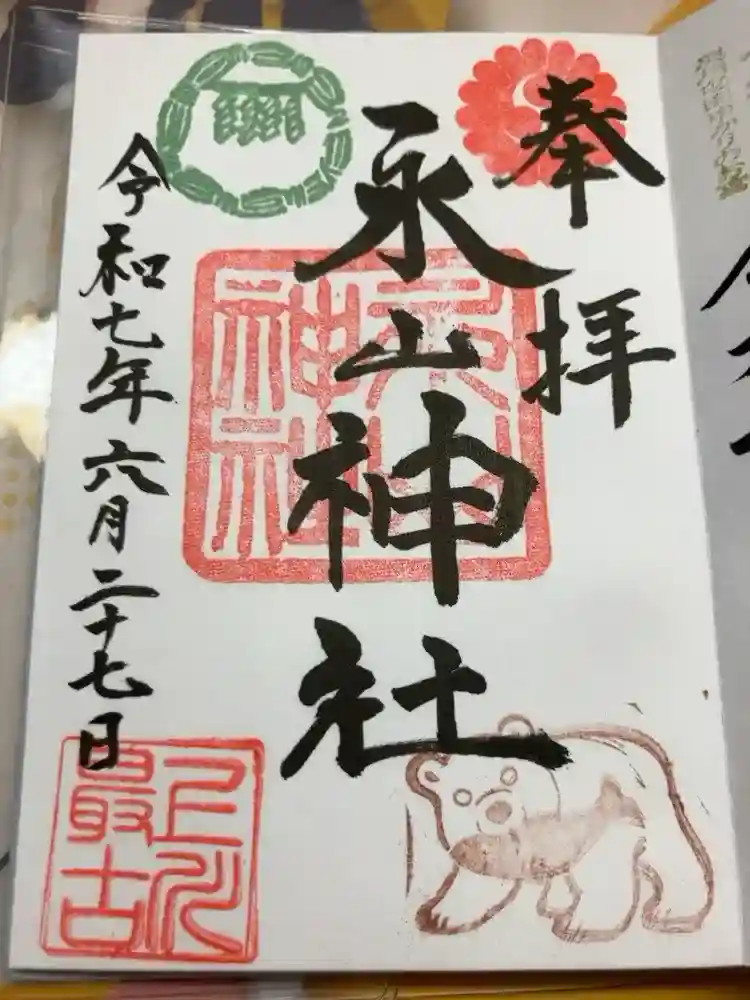 奉拝
永山神社
令和七年六月二十七日
永山
神社
上川
最古